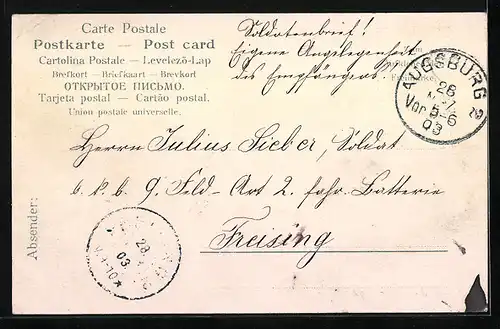 Carte Postale
Postkarte — Post card
Cartolina Postale – Levelező-Lap
Brefkort – Briefkaart – Brevkort
ОТКРЫТОЕ ПИСЬМО.
Tarjeta postal – Cartão postal.
Union postale universelle.
Soldatenbrief!
Eigene Angelegenheit
des Empfängers
AUGSBURG 2
26
Vor 5-6
03
Herrn Julius Sieber, Soldat
k. b. 9. Feld-Art 2. fahr. Batterie
Freising
Absender:
26
03